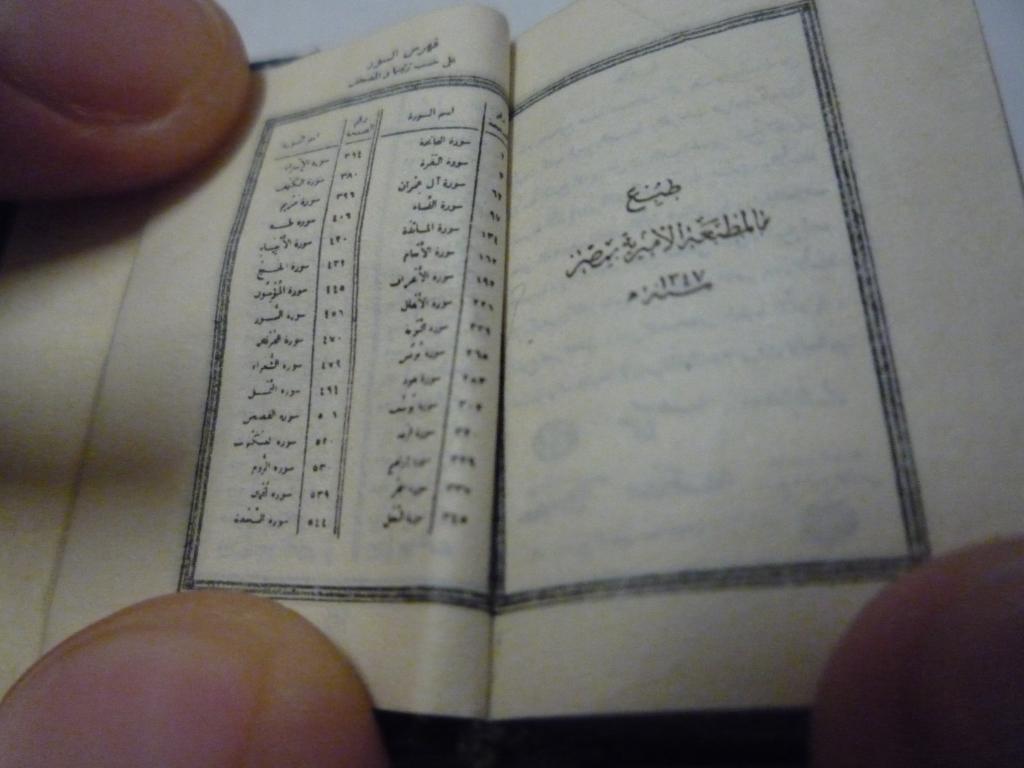 طبع
بالمطبعة الاميرية بمصر
سنة ١٣٤٧ هـ
فهرس السور
على حسب ترتيبها في المصحف
رقم الصحيفة
اسم السورة
سورة الفاتحة
سورة البقرة
سورة آل عمران ٦٢
سورة النساء ٩٥
سورة المائدة ١٣٤
سورة الأنعام ١٦٥
سورة الأعراف ١٩٥
سورة الأنفال ٢٢٦
سورة التوبة ٢٣٩
سورة يونس ٢٦٥
سورة هود ٢٨٣
سورة يوسف ٣٠٥
سورة الرعد
سورة إبراهيم
سورة الحجر
سورة النحل ٣٤٥
رقم الصحيفة
اسم السورة
سورة الإسراء ٣٦٤
سورة الكهف ٣٨٠
سورة مريم ٣٩٦
سورة طه ٤٠٦
سورة الأنبياء ٤٢٠
سورة الحج ٤٣٢
سورة المؤمنون ٤٤٥
سورة النور ٤٥٦
سورة الفرقان ٤٧٠
سورة الشعراء ٤٧٩
سورة النمل ٤٩٤
سورة القصص ٥٠٦
سورة العنكبوت ٥٢٠
سورة الروم ٥٣٠
سورة لقمان ٥٣٩
سورة السجدة ٥٤٤